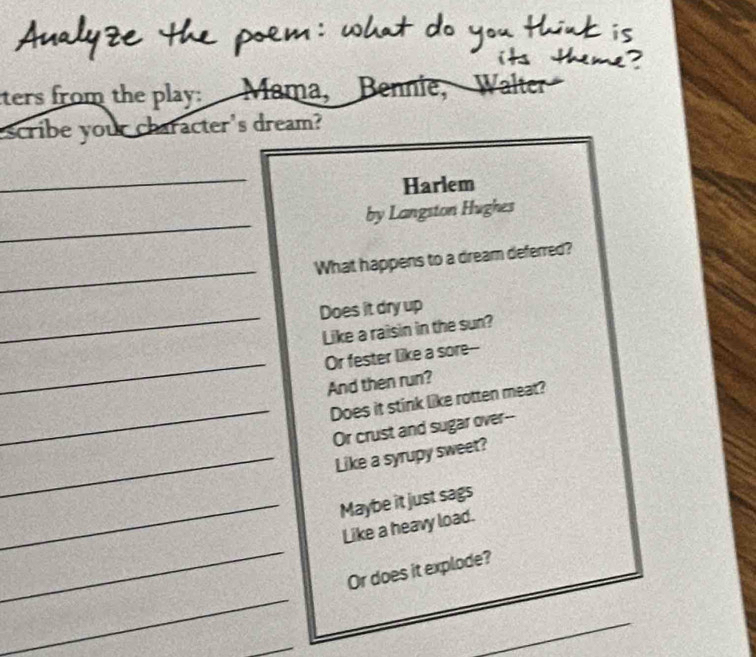 Analyze the poem: what do you think is
its theme?
ters from the play: Mama, Bennie, Walter
scribe your character's dream?
Harlem
by Langston Hughes
What happens to a dream deferred?
Does it dry up
Like a raisin in the sun?
Or fester like a sore--
And then run?
Does it stink like rotten meat?
Or crust and sugar over--
Like a syrupy sweet?
Maybe it just sags
Like a heavy load.
Or does it explode?